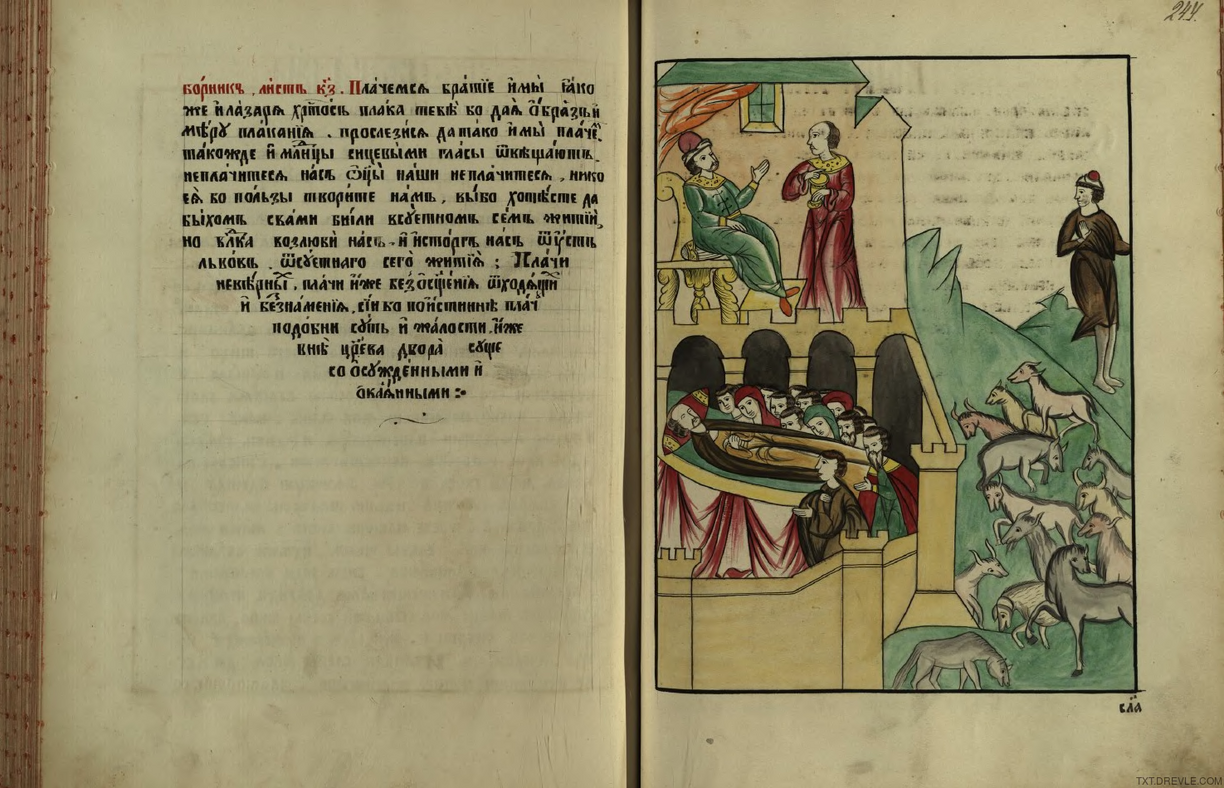 бо́рникъ, ли́стъ к҃з. Пла́чемся бра́тїе и҆мы̀ ꙗ҆́ко
же и҆ла́заря хрⷭ҇то́съ плака тебѣ́ бо дая̀ ѻ҆́бразъ и҆
мѣ́ру пла́канїя. прослезися да тако и҆мы̀ пла́че
тако́жде и҆ млⷣнцы сицевы́ми гла́сы ѿвѣща́ютъ.
не пла́читеся на́съ ѻ҆тцы̀ на́ши не пла́читеся, нико
ея́ бо по́льзы твори́те на́мъ, вы́ бо хотѣ́сте да
бы́хомъ сва́ми бы́ли в суетномъ се́мъ житїи̂,
но влⷣка возлюби̂ на́съ. и҆ исто́ргъ на́съ ѿ у҆́стъ
льво́въ. ѿ суетнаго сего̀ житїя̀; Пла́чи
невѣ́рнїи, пла́чи и҆̂же без̾ ѻ҆сщ҃е́нїя ѿходя́щїи
и҆ без̾ зна́менїя, сїи́ бо пои҆́стиннѣ пла́ч
подо́бни су́ть и҆ жа́лости, и҆́же
внѣ̀ црⷭ҇ва двора̀ су́ще
со ѻ҆сужде́нными и҆
ѻ҆кая́нными :•
244.
сл҃а
TXT.DREVLE.COM